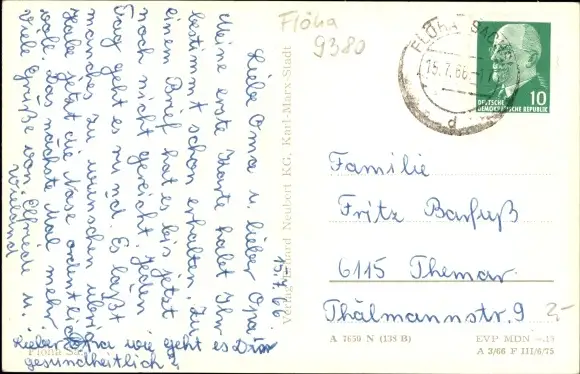 Flöha
9380
15.7.66
Liebe Oma u. lieber Opa!
Meine erste Karte habt Ihr
bestimmt schon erhalten. Zu
einem Brief hat es bis jetzt
noch nicht gereicht. Jeden
Tag geht es rund. Es läßt
manches zu wünschen übrig.
Habe jetzt die Nase ordentlich
voll. Das nächste Mal mehr.
Viele Grüße von Elfriede u.
Wieland
Lieber Opa wie geht es Dir
gesundheitlich?
Flöha Sa.
Verlag Erhard Neubert KG, Karl-Marx-Stadt
FLÖHA (SACHS)
15.7.66
d
DEUTSCHE
DEMOKRATISCHE REPUBLIK
10
Familie
Fritz Barfuß
6115 Themar
Thälmannstr. 9
2,-
A 7650 N (138 B)
EVP MDN
A 3/66 F III/6/75